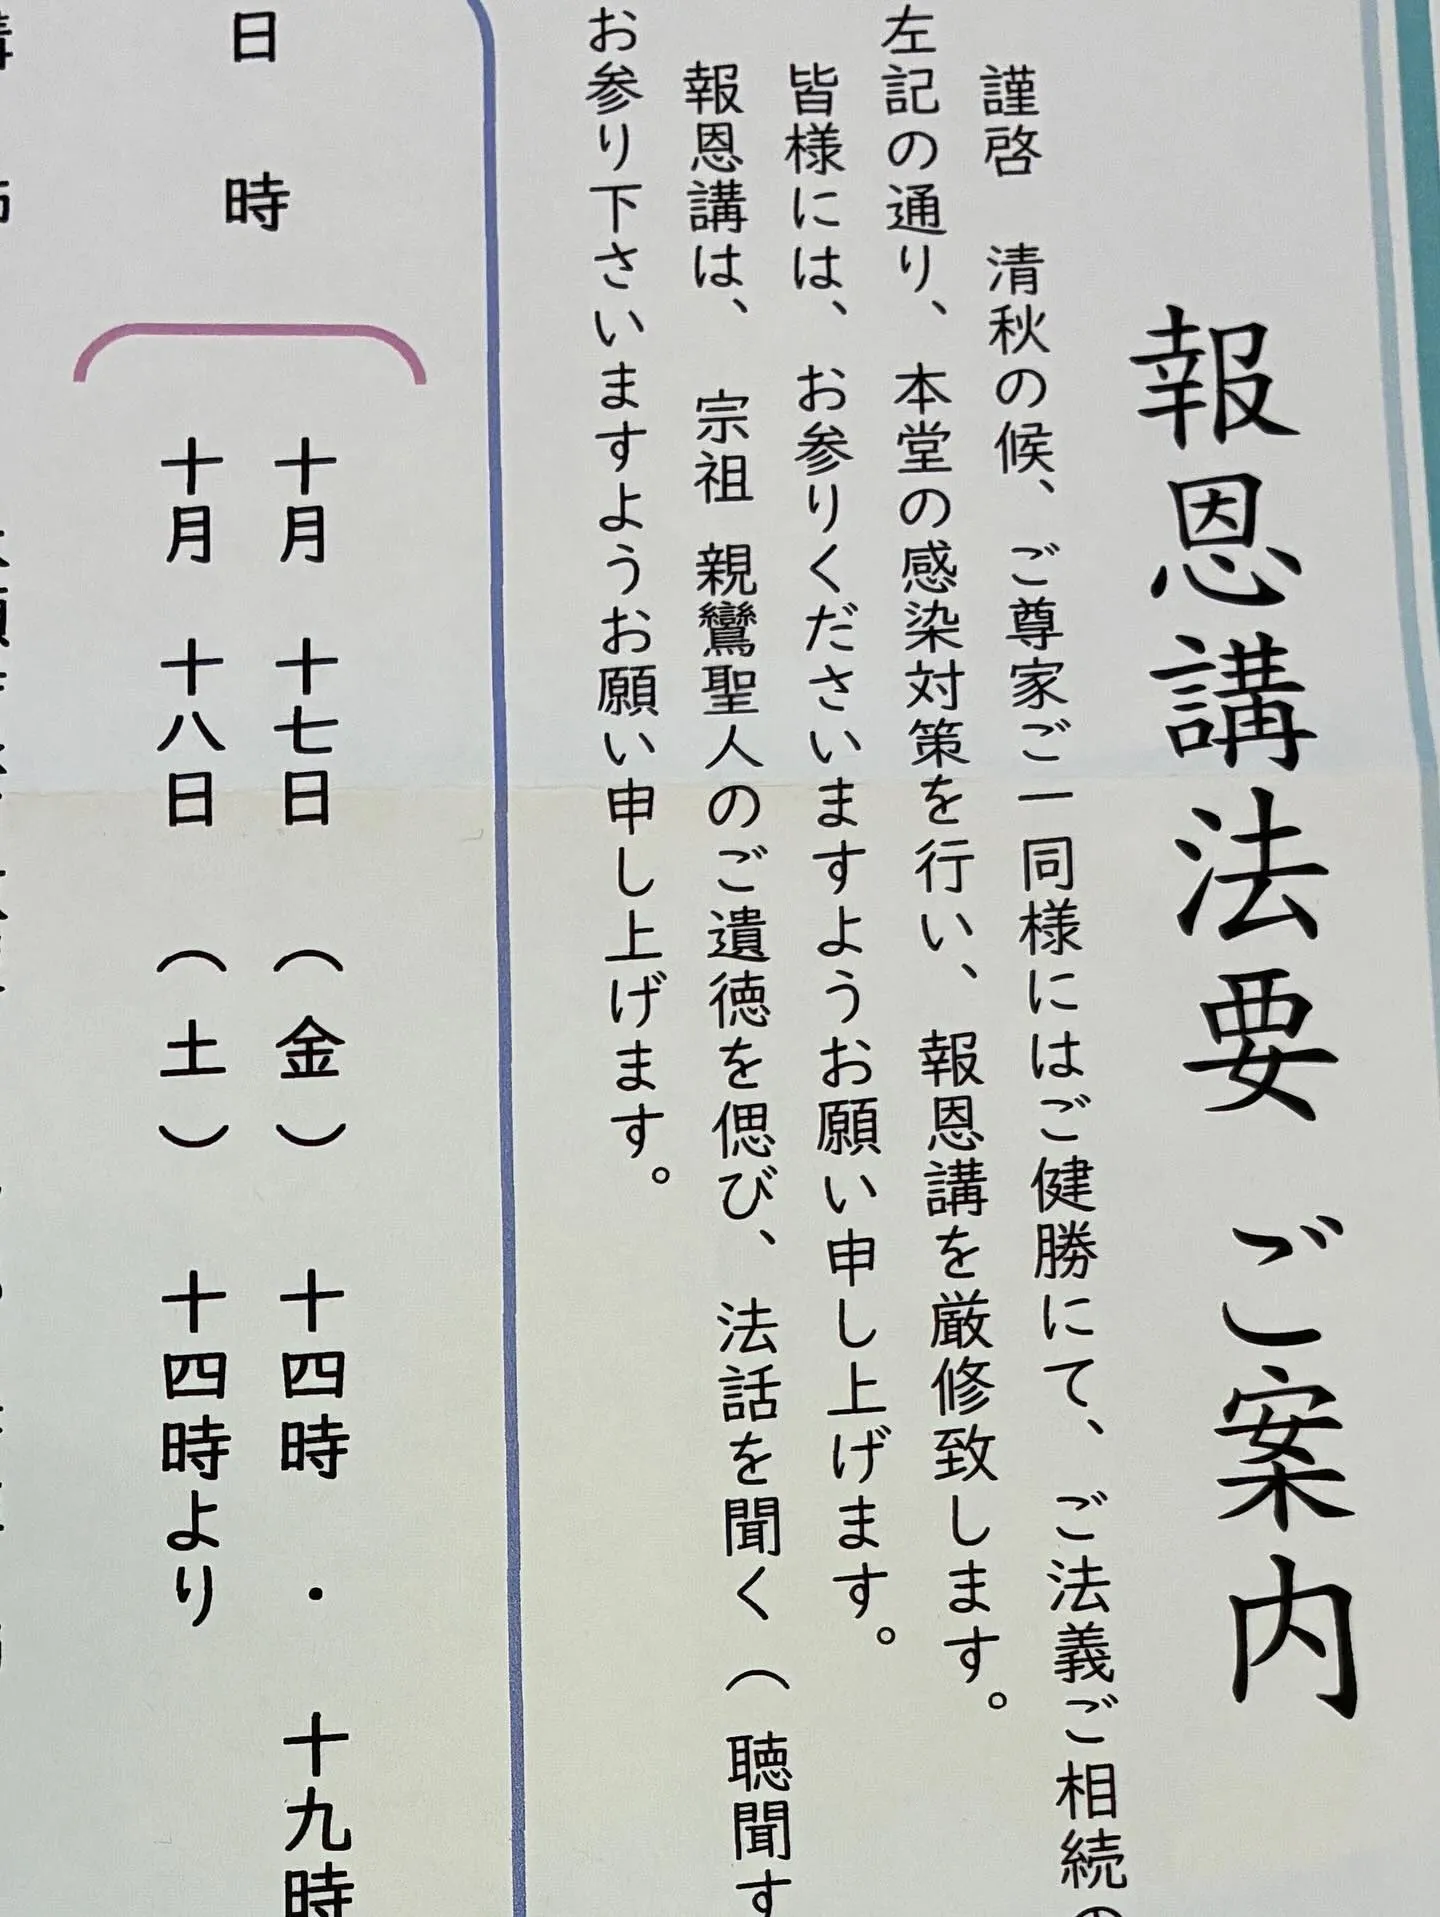 報恩講法要 ご案内
謹啓 清秋の候、ご尊家ご一同様にはご健勝にて、ご法義ご相続の
左記の通り、本堂の感染対策を行い、報恩講を厳修致します。
皆様には、お参りくださいますようお願い申し上げます。
報恩講は、宗祖 親鸞聖人のご遺徳を偲び、法話を聞く（聴聞す
お参り下さいますようお願い申し上げます。
日 時
十月 十七日（金） 十四時 ・ 十九時
十月 十八日（土） 十四時より